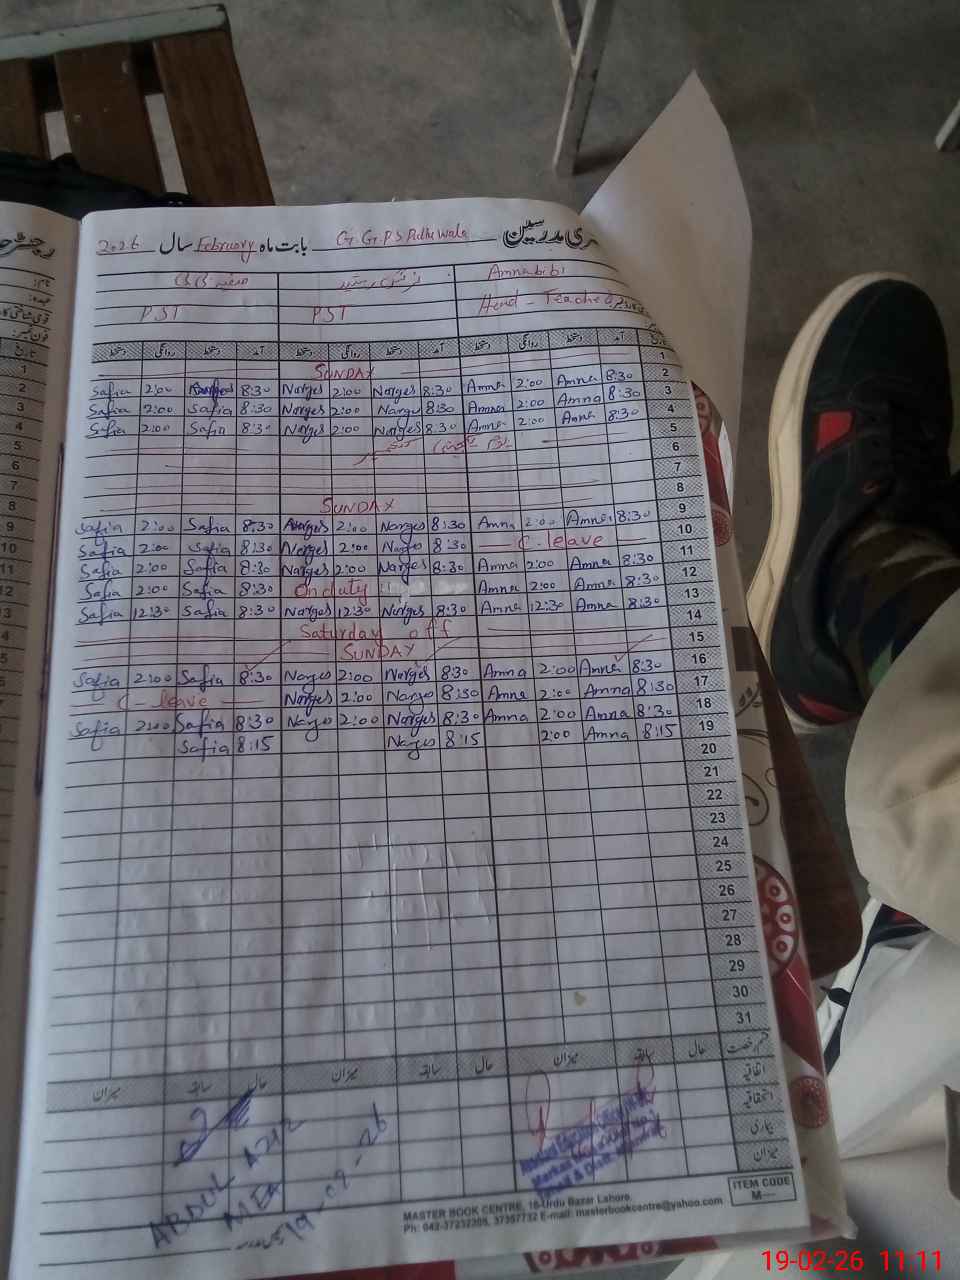 2026 سال February بابت ماہ G.G.P.S
Amna bibi
PST PST Head - Teacher
دستخط روانگی دستخط آمد دستخط روانگی دستخط آمد دستخط روانگی دستخط آمد تاریخ
1
SUNDAY
Safia 2:00 8:30 Narges 2:00 Narges 8:30 Amna 2:00 Amna 8:30 2
Safia 2:00 Safia 8:30 Narges 2:00 Narges 8:30 Amna 2:00 Amna 8:30 3
Safia 2:00 Safia 8:30 Narges 2:00 Narges 8:30 Amna 2:00 Amna 8:30 4
5
6
7
SUNDAY 8
Safia 2:00 Safia 8:30 Narges 2:00 Narges 8:30 Amna 2:00 Amna 8:30 9
Safia 2:00 Safia 8:30 Narges 2:00 Narges 8:30 C. leave 10
Safia 2:00 Safia 8:30 Narges 2:00 Narges 8:30 Amna 2:00 Amna 8:30 11
Safia 2:00 Safia 8:30 On duty Amna 2:00 Amna 8:30 12
Safia 12:30 Safia 8:30 Narges 12:30 Narges 8:30 Amna 12:30 Amna 8:30 13
Saturday off 14
SUNDAY 15
Safia 2:00 Safia 8:30 Narges 2:00 Narges 8:30 Amna 2:00 Amna 8:30 16
C - leave Narges 2:00 Narges 8:30 Amna 2:00 Amna 8:30 17
Safia 2:00 Safia 8:30 Narges 2:00 Narges 8:30 Amna 2:00 Amna 8:30 18
Safia 8:15 Narges 8:15 2:00 Amna 8:15 19
20
21
22
23
24
25
26
27
28
29
30
31
میزان سابقہ حال میزان سابقہ حال میزان سابقہ حال قسم رخصت
اتفاقیہ
استحقاقیہ
بیماری
میزان
ABDUL AZIZ
MEA
19-02-26
MASTER BOOK CENTRE, 16-Urdu Bazar Lahore.
Ph: 042-37232308, 37357732 E-mail: masterbookcentre@yahoo.com
ITEM CODE
M----
19-02-26 11:11